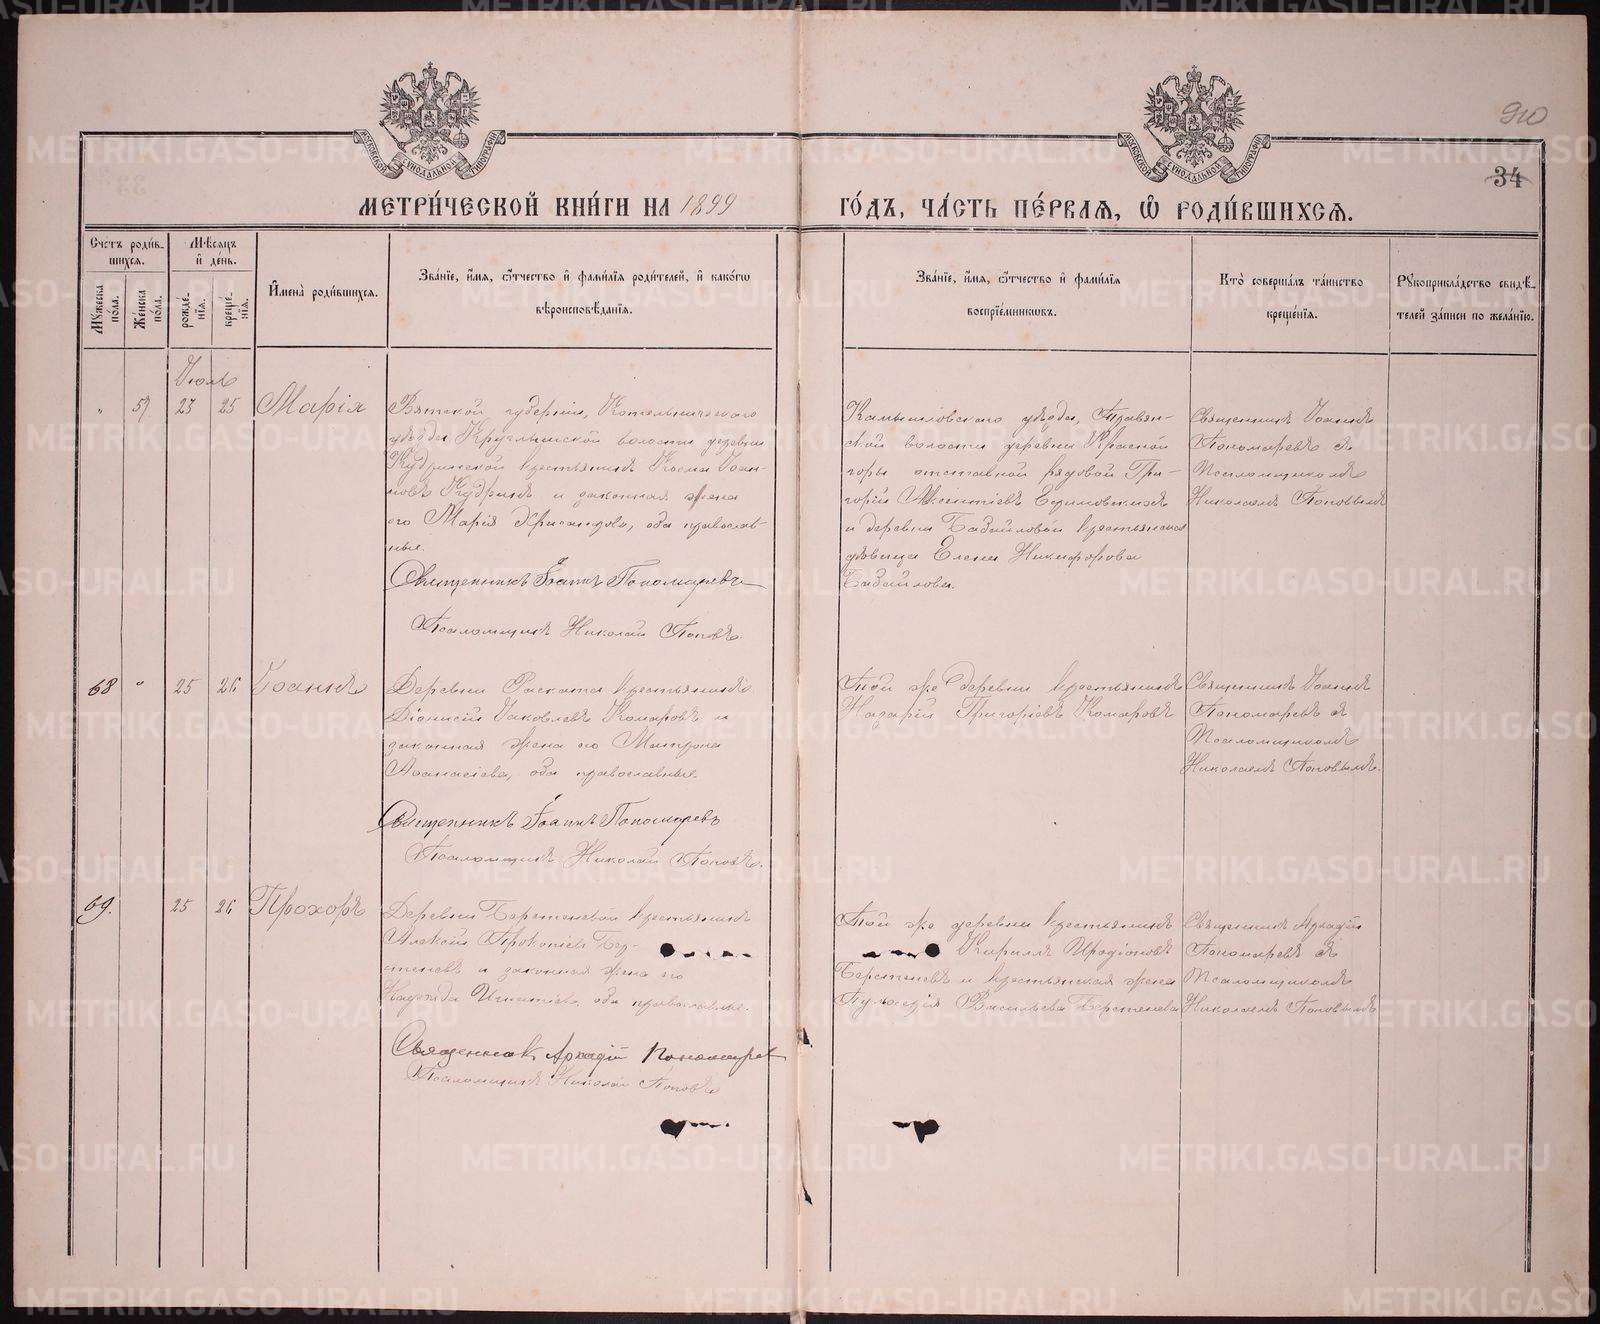 910
34
МЕТРИ́ЧЕСКОЙ КНИ́ГИ НА 1899 ГО́ДЪ, ЧА́СТЬ ПЕ́РВАЯ, Ѡ҆ РОДИ́ВШИХСЯ.
Сче́тъ роди́вшихся.
Му́жеска по́ла.
Же́нска по́ла.
Мѣ́сяцъ и҆ де́нь.
рожде́нїя.
креще́нїя.
И҆мена̀ роди́вшихся.
Зва́нїе, и҆́мя, ѻ҆́тчество и҆ фами́лїя роди́телей, и҆ како́гѡ
вѣроисповѣ́данїя.
Зва́нїе, и҆́мя, ѻ҆́тчество и҆ фами́лїя
воспрїе́мниковъ.
Кто̀ соверша́лъ та́инство
креще́нїя.
Рукоприкла́дство свидѣ́-
телей за́писи по жела́нїю.
Іюль
" 57 23 25 Марія
Вятской губерніи, Котельническаго
уѣзда Круглыжской волости, деревни
Кудринской крестьянинъ Косма Іоан-
новъ Кудринъ и законная жена
его Марія Хрисанѳова, оба православ-
ные.
Священникъ Іоаннъ Пономаревъ
Псаломщикъ Николай Поповъ.
Камышловскаго уѣзда, Травян-
ской волости деревни Красной
горы отставной рядовой Гри-
горій
и деревни Бадайловой крестьянская
дѣвица Елена Никифорова
Бадайлова.
Священникъ Іоаннъ
Пономаревъ съ
Псаломщикомъ
Николаемъ Поповымъ
68 " 25 26 Іоаннъ
Деревни Раската крестьянинъ
Діонисій Іаковлевъ Комаровъ и
законная жена его Матрона
Аѳанасіева, оба православные.
Священникъ Іоаннъ Пономаревъ
Псаломщикъ Николай Поповъ.
Той же деревни крестьянинъ
Назарій Григоріевъ Комаровъ
Священникъ Іоаннъ
Пономаревъ съ
Псаломщикомъ
Николаемъ Поповымъ.
69. 25 26 Прохоръ
Деревни Берстеневой крестьянинъ
Алексій Прокопіевъ Бер-
стеневъ и законная жена его
Надежда Игнатіева, оба православные.
Священникъ Аркадій Пономарев
Псаломщикъ Николай Поповъ
Той же деревни крестьянинъ
Кириллъ Иродіоновъ
Берстеневъ и крестьянская жена
Пульхерія Васильева Берстенева
Священникъ Аркадій
Пономаревъ съ
Псаломщикомъ
Николаемъ Поповымъ
METRIKI.GASO-URAL.RU